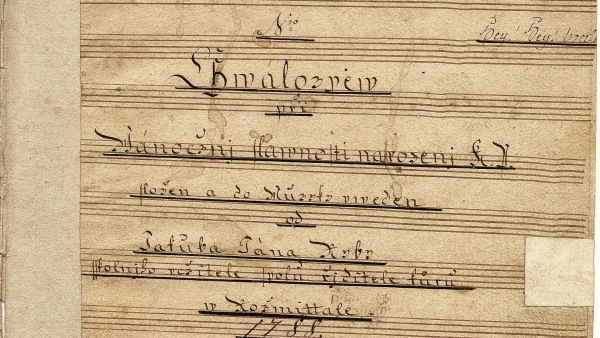 Nro
Hey! Hey!
Chwálozpěw
při
Wánočnj slawnosti narozenj K. P.
složen a do Muzyky uweden
od
Jakuba Jána Ryby
sskolnjho učitele spolu řjditele kůru
w Rožmittale.
1788.